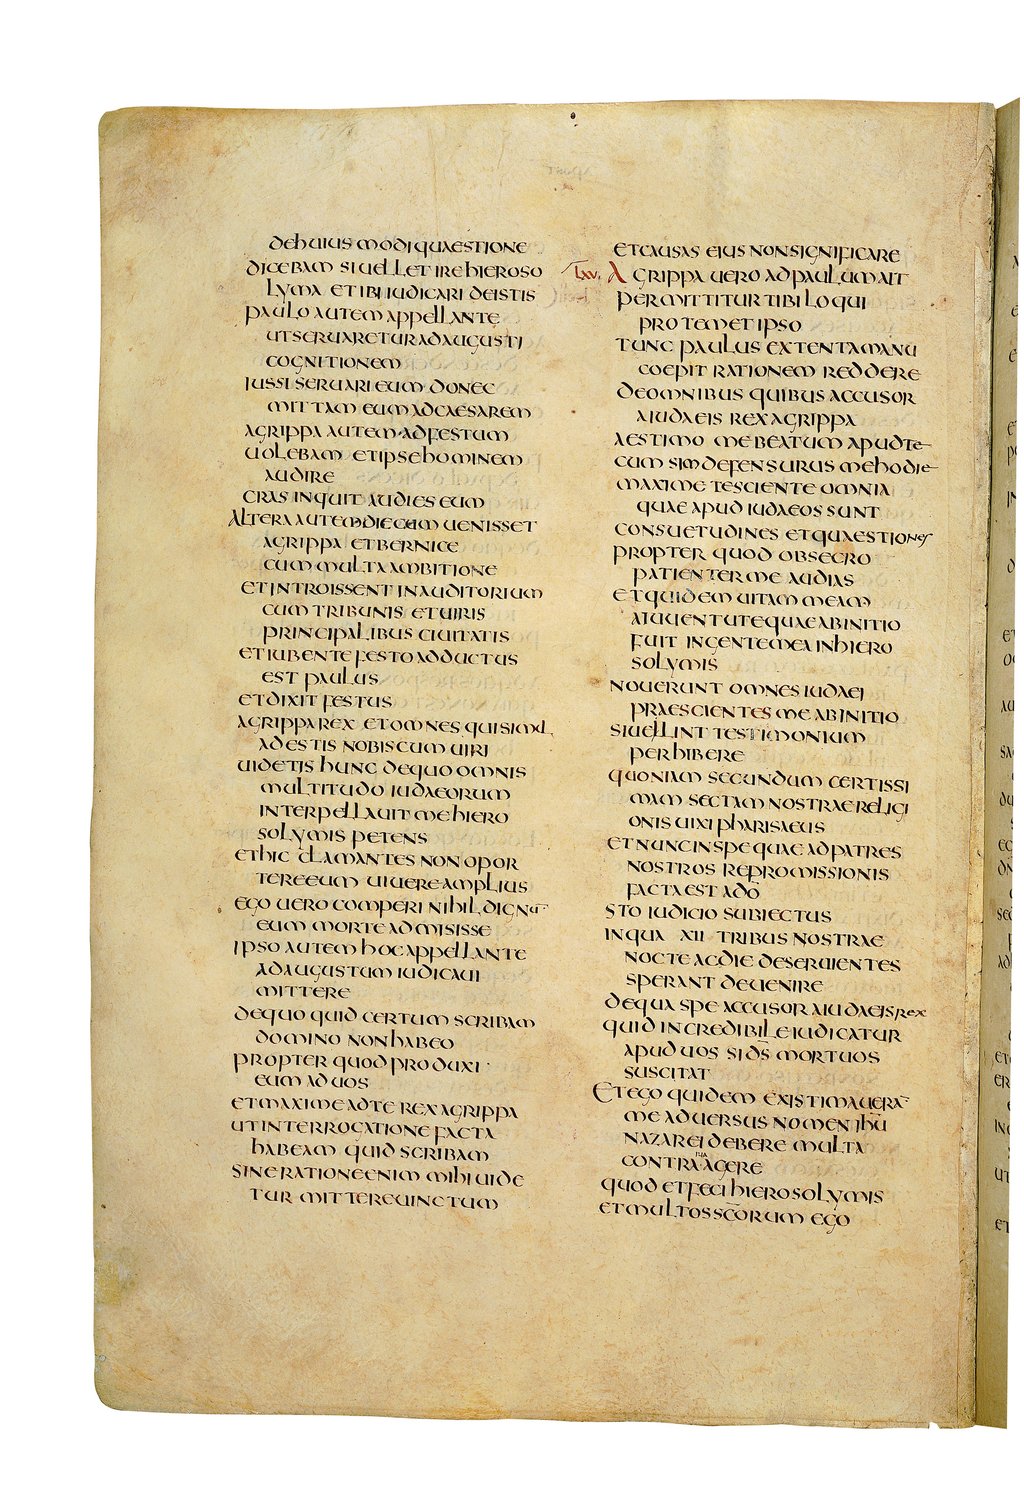 de huius modi quaestione
dicebam si uellet ire hieroso
lyma et ibi iudicari de istis
paulo autem appellante
ut seruaretur ad augusti
cognitionem
iussi seruari eum donec
mittam eum ad caesarem
agrippa autem ad festum
uolebam et ipse hominem
audire
cras inquit audies eum
altera autem die cum uenisset
agrippa et bernice
cum multa ambitione
et introissent in auditorium
cum tribunis et uiris
principalibus ciuitatis
et iubente festo adductus
est paulus
et dixit festus
agripparex et omnes qui simul
adestis nobiscum uiri
uidetis hunc de quo omnis
multitudo iudaeorum
interpellauit me hiero
solymis petens
et hic clamantes non opor
tere eum uiuere amplius
ego uero comperi nihil dignū
eum morte admisisse
ipso autem hoc appellante
ad augustum iudicaui
mittere
de quo quid certum scribam
domino non habeo
propter quod produxi
eum ad uos
et maxime ad te rex agrippa
ut interrogatione facta
habeam quid scribam
sine ratione enim mihi uide
tur mittere uinctum
et causas eius non significare
lxv. agrippa uero ad paulum ait
permittitur tibi loqui
pro temet ipso
tunc paulus extenta manu
coepit rationem reddere
de omnibus quibus accusor
a iudaeis rex agrippa
aestimo me beatum apud te
cum sim defensurus me hodie
maxime te sciente omnia
quae apud iudaeos sunt
consuetudines et quaestiones
propter quod obsecro
patienter me audias
et quidem uitam meam
a iuuentute quae ab initio
fuit in gente mea in hiero
solymis
nouerunt omnes iudaei
praescientes me ab initio
si uellint testimonium
perhibere
quoniam secundum certissi
mam sectam nostrae religi
onis uixi pharisaeus
et nunc in spe quae ad patres
nostros repromissionis
facta est a dō
sto iudicio subiectus
in qua xii tribus nostrae
nocte ac die deseruientes
sperant deuenire
de qua spe accusor a iudaeis rex
quid incredibile iudicatur
apud uos si ds̄ mortuos
suscitat
et ego quidem existimaueram
me aduersus nomen ihū
nazarei debere multa
contraria agere
quod et feci hierosolymis
et multos scorum ego